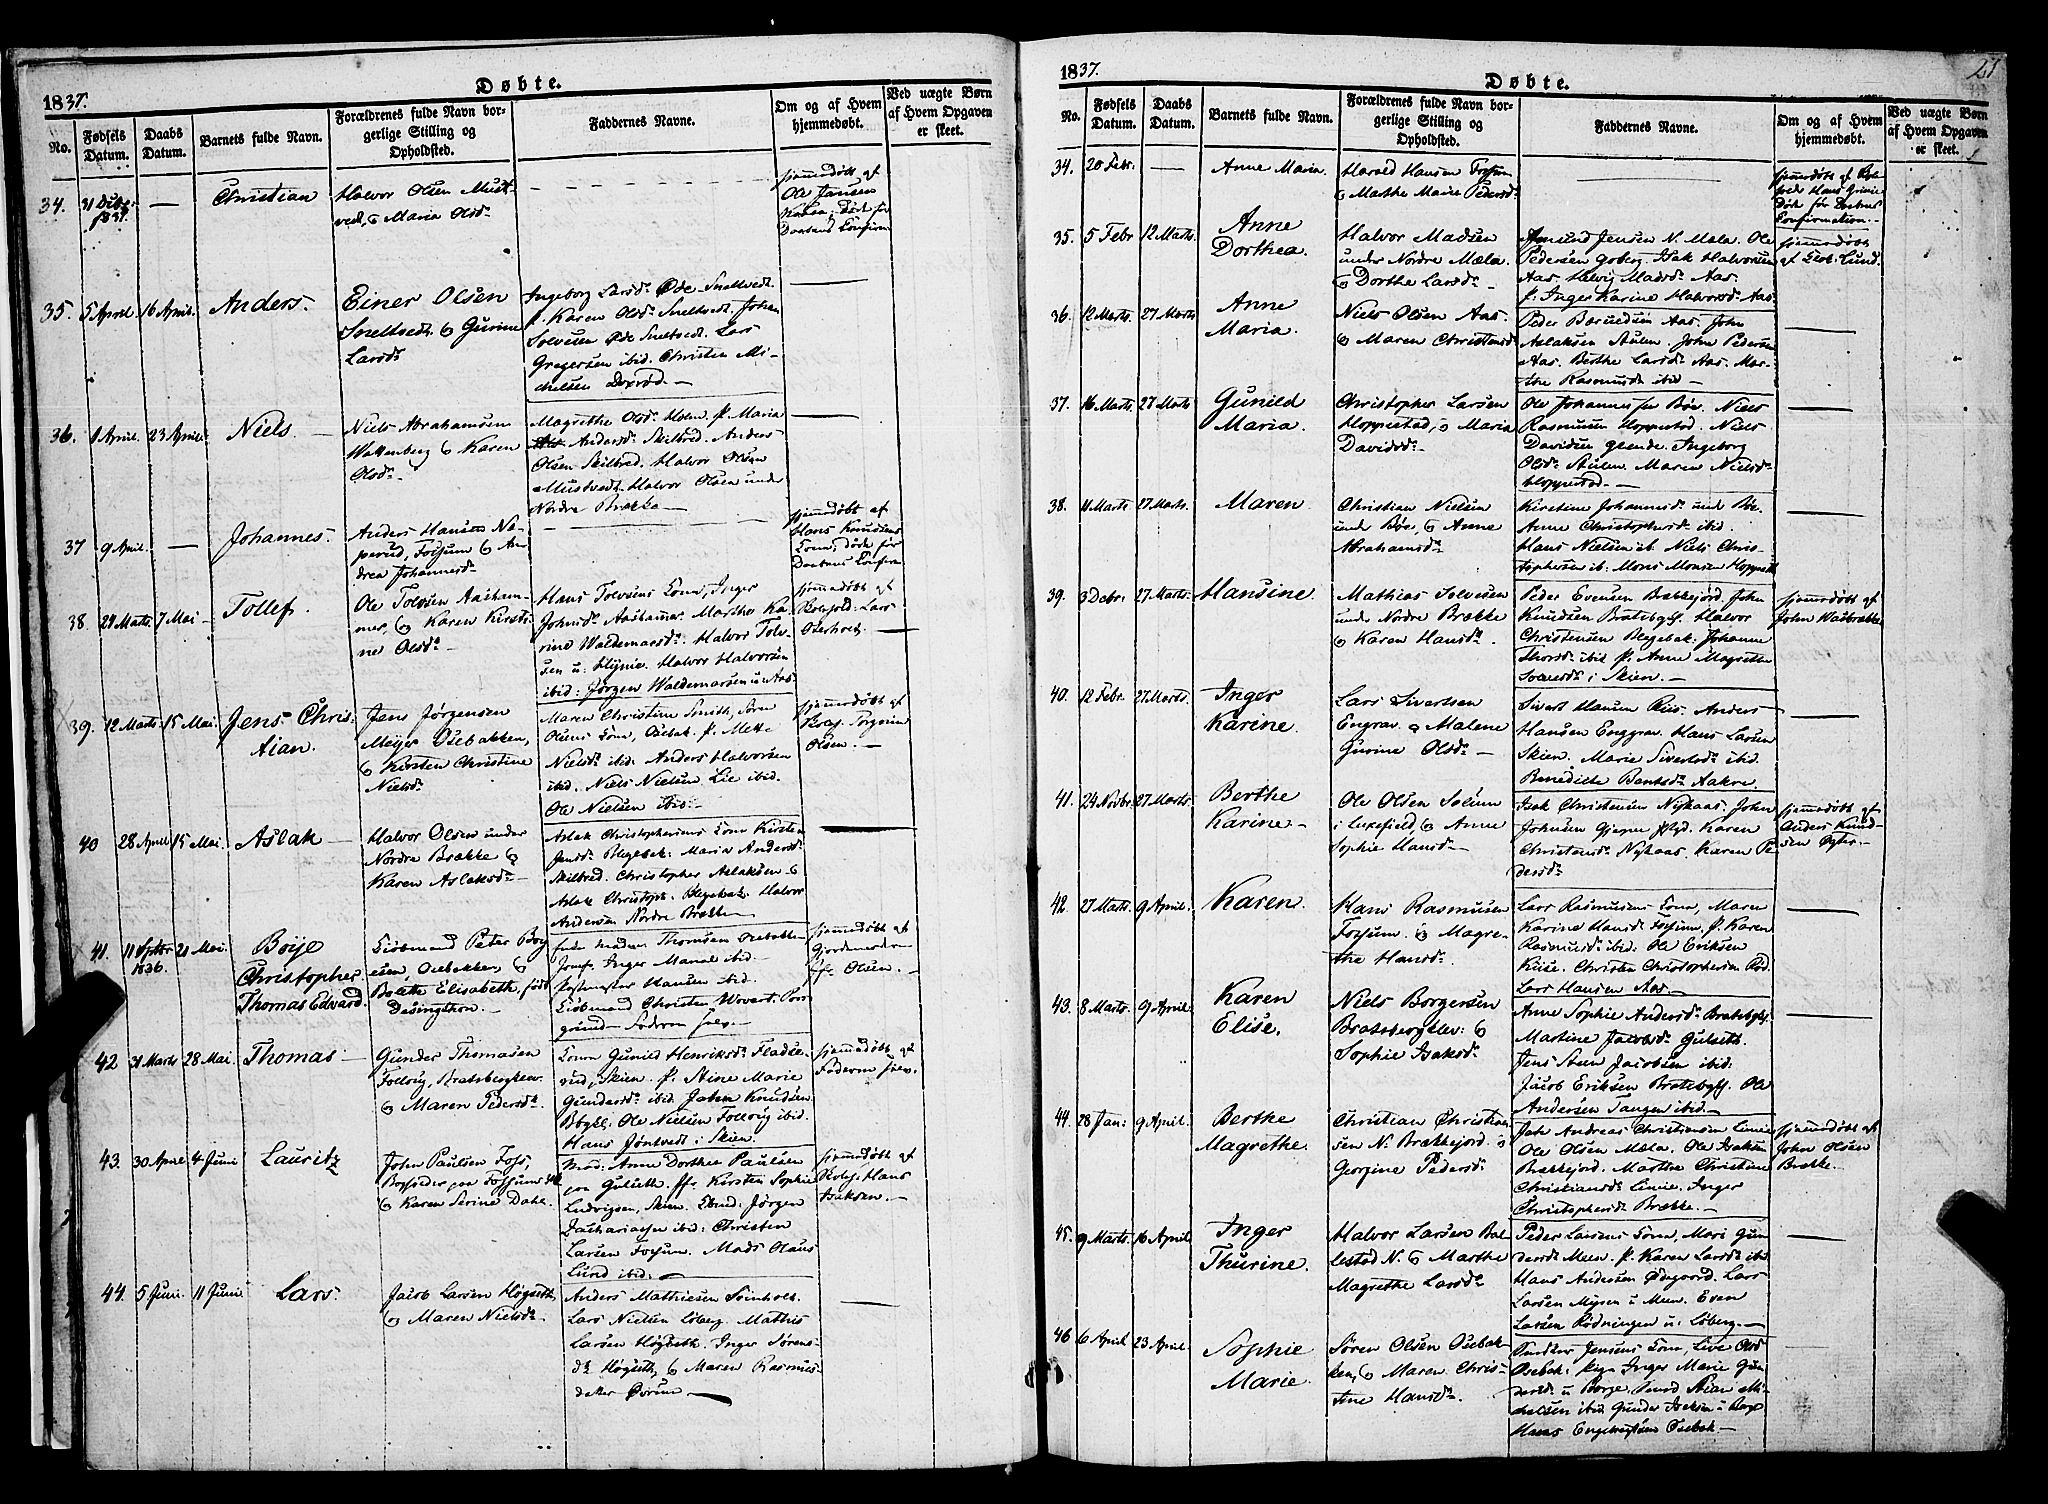 1837.
Døbte.
No.
Fødsels Datum.
Daabs Datum.
Barnets fulde Navn.
Forældrenes fulde Navn borgerlige Stilling og Opholdsted.
Faddernes Navne.
Om og af Hvem hjemmedøbt.
Ved uægte Børn af Hvem Opgaven er skeet.
34.
—
Christian
Halvor Olsen Must-
ved, & Maria Olsd.
hjemmedøbt af
Ole Jansen
35.
5 April
16 April
Anders.
Einer Olsen
Sneltvedt & Gurine
Larsd
Ingeborg Larsd. Øde Sneltvedt.
p. Karen Olsd. Sneltvedt. Johan
Solvesen Øde Snelvedt. Lars
Gregersen ibid. Christen Mi-
chelsen
36.
1 April.
23 April.
Niels. —
Niels Abrahamsen
Wattenberg & Karen
Olsd.
Magrethe Olsd. Holm. p. Maria
Andersd. Skilbred. Anders
Olsen Skilbred. Halvor Olsen
Mustvedt. Halvor Olsen under
Nordre Brække —
37
9 April.
—
Johannes.
Anders Hansen Na-
perud, Fossum & An-
drea Johannesd.
hjemmedøbt af
Hans Knudsens
Kone, døde før
38.
29 Marts
7 Mai
Tollef.
Ole Tolvsen Aasham-
mer, & Karen Kirsti-
ne Olsd.
Hans Tolvsens Kone, Inger
Johnsd. Aashamer. Marthe Ka-
rine Waldemarsd. Halvor Tolv-
sen u. Halvor Halvorsen
ibid: Jørgen Waldemarsen u. Aas.
hjemmedøbt af
Lars
Osterholt. —
39.
12 Marts.
15 Mai.
Jens Chris-
tian.
Jens Jørgensen
Meyer Osebakken,
& Kirsten Christine
Nielsd.
Maren Christine Smith, Søren
Olsens Kone, Osebak. p. Mette
Nielsd. ibid. Anders Halvorsen
ibid. Niels Nielsen Lie ibid.
Ole Nielsen ibid.
hjemmedøbt af
Olsen. —
40
28 April
15 Mai.
Aslak —
Halvor Olsen under
Nordre Brække &
Karen Aslaksd. —
Aslak Christophersens Kone Kirsten
Jensd. Blegebak. Maria Andersd.
Skilbred. Christopher Aslaksen &
Aslak Christoph. Blegebak. Halvor
Andersen Nordre Brække —
41.
11 Septbr 1836.
21 Mai.
Boije
Christopher
Thomas Edvard
Skibmand Peter Boy-
esen, Osebakken, &
Bolette Elisabeth, født
Desingthon. —
Madam Thomsen Osebakken
Jomf. Inger Marie ibid. —
Hansen ibid. —
Skibmand Christen Wovert. Pors-
grund — Faderen selv. —
hjemmedøbt af
Gjordemoder
Olsen. —
42
31 Marts
28 Mai.
Thomas —
Gunder Thomasen
Follaug, Bratsbergkleven
& Maren Pedersd.
Konen Gunild Henriksd. Fladse-
rud, Skien. p. Stine Marie
Gundersd. ibid. John Knudsen
Bbgkl. Ole Nielsen Follaug ibid.
Hans Jøntvedt i Skien.
hjemmedøbt af
Faderen selv.
43.
30 April
4 Juni
Lauritz
John Paulsen Foss,
paa Fossum
& Karen Serine Dahl.
Mad. Anne Dorthea Paulsen
paa Gulseth. Kirsten Sophie
Ludvigsen, Skien. Jørgen
Zachariassen ibid: Christen
Larsen Fossum. Mads Olaus
Lund ibid. —
hjemmedøbt af
Hans
Isaksen. —
44.
5 Juni.
11 Juni
Lars.
Jacob Larsen Høgseth,
& Maren Nielsd.
Anders Mathiesen Steinholt.
Lars Nielsen Løberg. Mathis
Larsen Høgseth. Inger Sørens-
d. Høgseth, & Maren Rasmus-
datter
1837.
Døbte.
21
No.
Fødsels Datum.
Daabs Datum.
Barnets fulde Navn.
Forældrenes fulde Navn borgerlige Stilling og Opholdsted.
Faddernes Navne.
Om og af Hvem hjemmedøbt.
Ved uægte Børn af Hvem Opgaven er skeet.
34.
20 Febr.
—
Anne Maria.
Harald Hansen Fossum
& Marthe Marie Pedersd.
hjemmedøbt af
Døde før Daabens
Confirmation. —
35.
5 Febr
12 Marts.
Anne
Dorthea.
Halvor Madsen
under Nordre Mæla.
& Dorthe Larsd. —
Amund Jensen N. Mæla. Ole
Pedersen Isak Halvorsen
Aas. Helvig Madsd. Aas.
p. Inger Karine Halvorsd. Aas.
hjemmedøbt
af Lund.
36.
12 Marts.
27 Marts
Anne
Maria.
Niels Olsen Aas.
& Maren Christensd.
Peder Aas. John
Aslaksen Stulen. John Pedersen
Aas. Berthe Larsd. Aas. Mar-
the Rasmusd. ibid —
37.
16 Marts.
27 Marts
Gunild
Maria.
Christopher Larsen
Hoppestad, & Maria
Davidsd. —
Ole Johannesen Bøe. Niels
Rasmusen Hoppestad. Niels
Davidsen Grende. Ingeborg
Olsd. Stulen. Maren Nielsd.
Hoppestad. —
38.
11 Marts.
27 Marts.
Maren
Christian Nielsen
under Bøe, & Anne
Abrahamsd.
Kirstine Johannesd. under Bøe.
Anne Christophersd. ibid.
Hans Nielsen ib. Niels Chris-
tophersen ib. Mons Monsen Hoppest.
39.
3 Debr.
27 Marts.
Hansine.
Mathias Solvesen
under Nordre Brække
& Karen Hansd.
Peder Evensen Bækkejord. John
Knudsen Bratsbgkl. Halvor
Christensen Blegebak. Johanne
Thorsd. ibid. p. Anne Magrethe
i Skien. —
hjemmedøbt af
John
40.
12 Febr.
27 Marts.
Inger
Karine.
Lars Sivertsen
Engrav. & Malene
Gurine Olsd. —
Sivert Hansen Riis. Anders
Hansen Enggrav. Hans Larsen
Skien. Marie Sivertsd. ibid.
Benedikte Bentsd. Aakre.
41.
24 Novbr.
27 Marts.
Berthe
Karine —
Ole Olsen Solum
i Luxefjeld, & Anne
Sophie Hansd. —
Isak Christensen Nykaas. John
Johnsen Gjerpen Karen
Christensd. Nykaas. Karen Pe-
dersd.
hjemmedøbt af
Anders Knud-
sen
42.
27 Marts.
9 April.
Karen.
Hans Rasmusen
Fossum. & Magre-
the Hansd.
Lars Rasmusens Kone, Maren
Karine Hansd. Fossum. p. Karen
Rasmusd. ibid. Ole Eriksen
Kiise. Christen Christophersen Rød.
Lars Hansen Aas. —
43.
8 Marts.
9 April.
Karen
Elise.
Niels Borgersen
Bratsbergklev: &
Sophie Isaksd.
Anne Sophie Andersd. Bratsbgkl.
Martine Jacobsd. Gulseth.
Jens Aven Jacobsen ibid.
Jacob Eriksen Bratsbgkl. Ole
Andersen Tangen ibid. —
44.
28 Jan:
9 April.
Berthe
Magrethe.
Christian Christian-
sen N. Brækkejord. &
Georgine Pedersd.
Joh. Andreas Christiansen Linie
Ole Olsen Mæla. Ole Isaksen
Brækkejord. Marthe Christine
Christiansd. Linie. Inger
Christophersd. Brække. —
hjemmedøbt af
John Olsen
Brække.
45.
9 Marts.
16 April
Inger
Thurine.
Halvor Larsen Bal-
lestad N. & Marthe
Magrethe Larsd.
Peder Larsens Kone, Mari Gun-
dersd. Meen. p. Karen Larsd. ibid.
Hans Andersen Ødegaard. Lars
Larsen Myren u. Meen. Even
Larsen Rødningen u. Løberg. —
46
6 April
23 April.
Sophie
Marie.
Søren Olsen Osebak-
ken, & Maren Chris-
tine Hansd.
Jensens Kone, Live Olsd.
Osebak. pige Inger Marie Gun-
dersd. u Borge.
ibid. Gunder Isaksen u Borge
Hans Engebretsen Osebak —